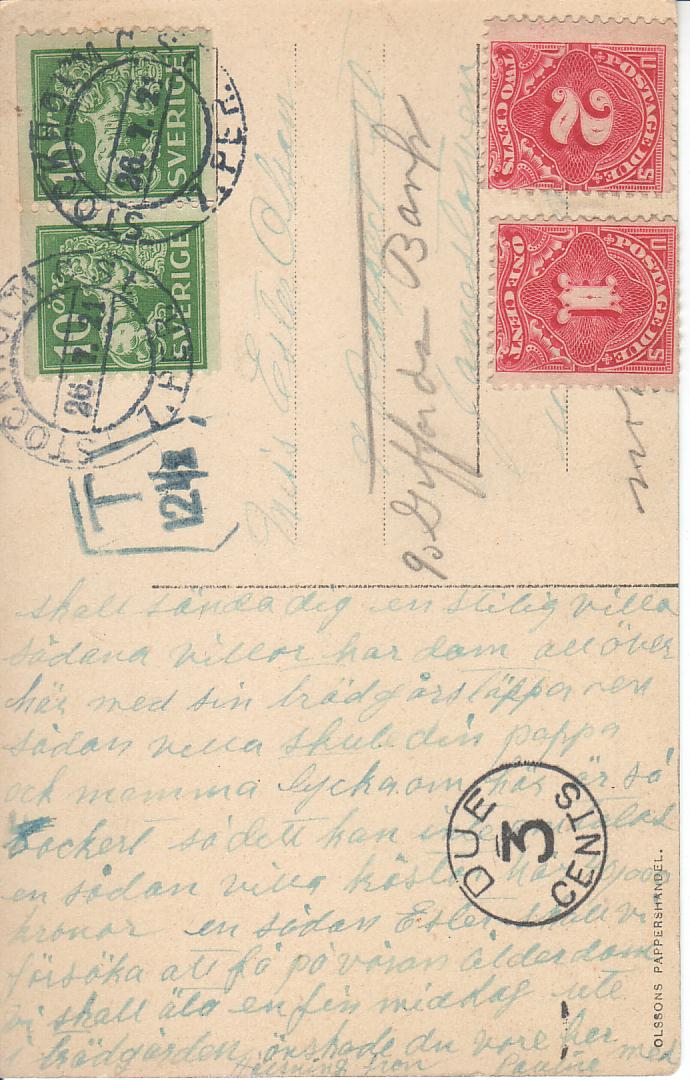 STOCKHOLM C.
26.7.21
1.PEC.
10 ÖRE
SVERIGE
10 ÖRE
SVERIGE
STOCKHOLM
26.7.21
1.PEC.
T
12½
U S
POSTAGE DUE
2
TWO CENTS
U S
POSTAGE DUE
1
ONE CENT
Miss Ester Olson
90 Giffords Bank
skall sända dig en stilig villa
sådana villor har dom allöver
här med sin trädgårstäppa
sådan villa skule din pappa
och mamma lycka om här är så
vockert så dett kan inte
en sådan villa kösta
kronor en sådan Ester skall vi
försöka att få på våran ålderdom
vi skall äta en fin middag ute
i trädgården önskade du vore her med
Hälsning från Pauline
DUE 3 CENTS
OLSSONS PAPPERSHANDEL.